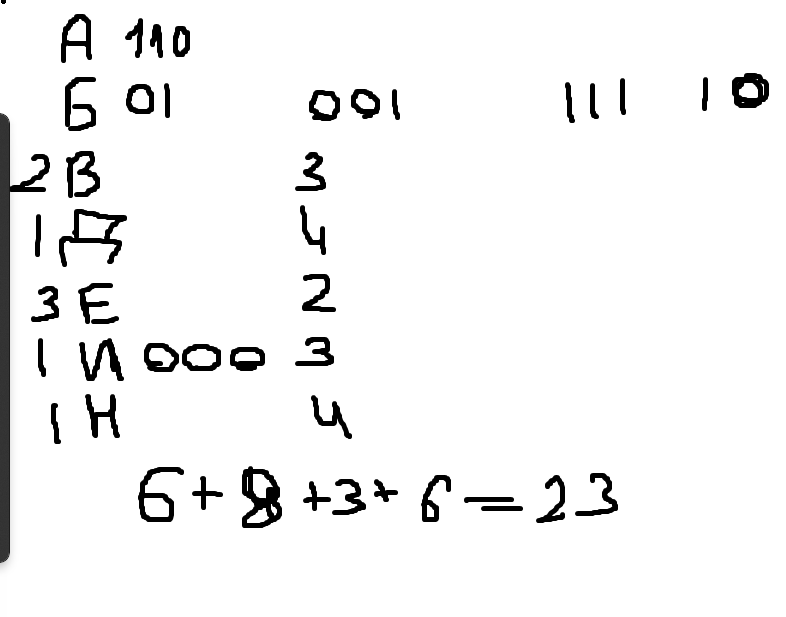 А 110
Б 01 001 111 10
2 В 3
1 Д 4
3 Е 2
1 И 000 3
1 Н 4
6+8+3+6=23